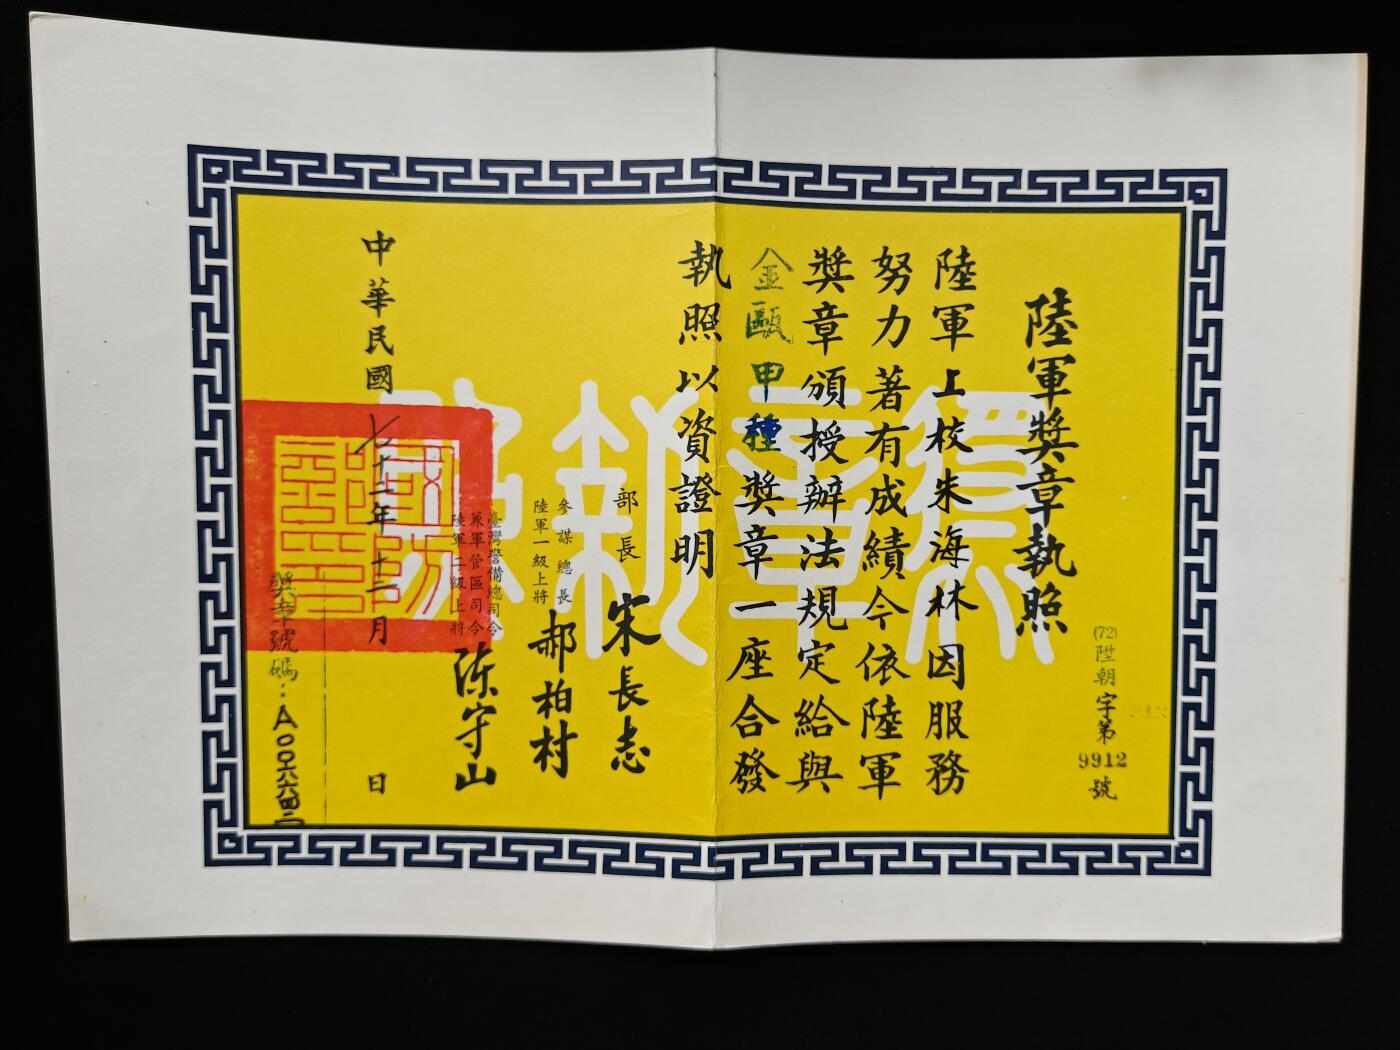 陸軍獎章執照
(72)陞朝字第9912號
陸軍上校朱海林因服務
努力著有成績今依陸軍
獎章頒授辦法規定給與
金甌甲種獎章一座合發
執照以資證明
部長宋長志
參謀總長
陸軍一級上將
郝柏村
臺灣警備總司令
兼軍管區司令
陸軍二級上將
陳守山
中華民國七十二年十二月 日
獎章號碼：A〇〇六六四二
獎章執照